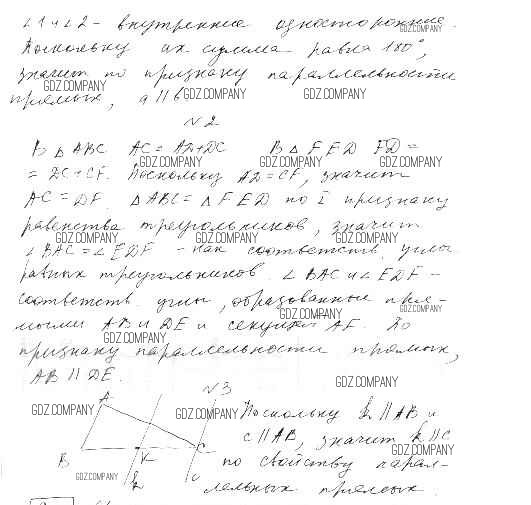 ∠1 и ∠2 - внутренние односторонние.
GDZ.COMPANY
Поскольку их сумма равна 180°,
значит по признаку параллельности
GDZ.COMPANY
прямых, a || b
GDZ.COMPANY GDZ.COMPANY
№2
В △ ABC AC = AD+DC В △ FED FD =
GDZ.COMPANY GDZ.COMPANY GDZ.COMPANY
= DC+CF. Поскольку AD=CF, значит
AC = DF. △ABC = △FED по I признаку
GDZ.COMPANY GDZ.COMPANY GDZ.COMPANY
равенства треугольников, значит
GDZ.COMPANY GDZ.COMPANY GDZ.COMPANY
∠BAC = ∠EDF - как соответств. углы
равных треугольников. ∠BAC и ∠EDF -
соответств. углы, образованные пря-
GDZ.COMPANY GDZ.COMPANY
мыми AB и DE и секущей AF. По
GDZ.COMPANY
признаку параллельности прямых,
AB || DE.
GDZ.COMPANY
№3
A
GDZ.COMPANY GDZ.COMPANY
Поскольку k || AB и
c || AB, значит k || c
GDZ.COMPANY
B K C
по свойству парал-
GDZ.COMPANY
k c
лельных прямых.